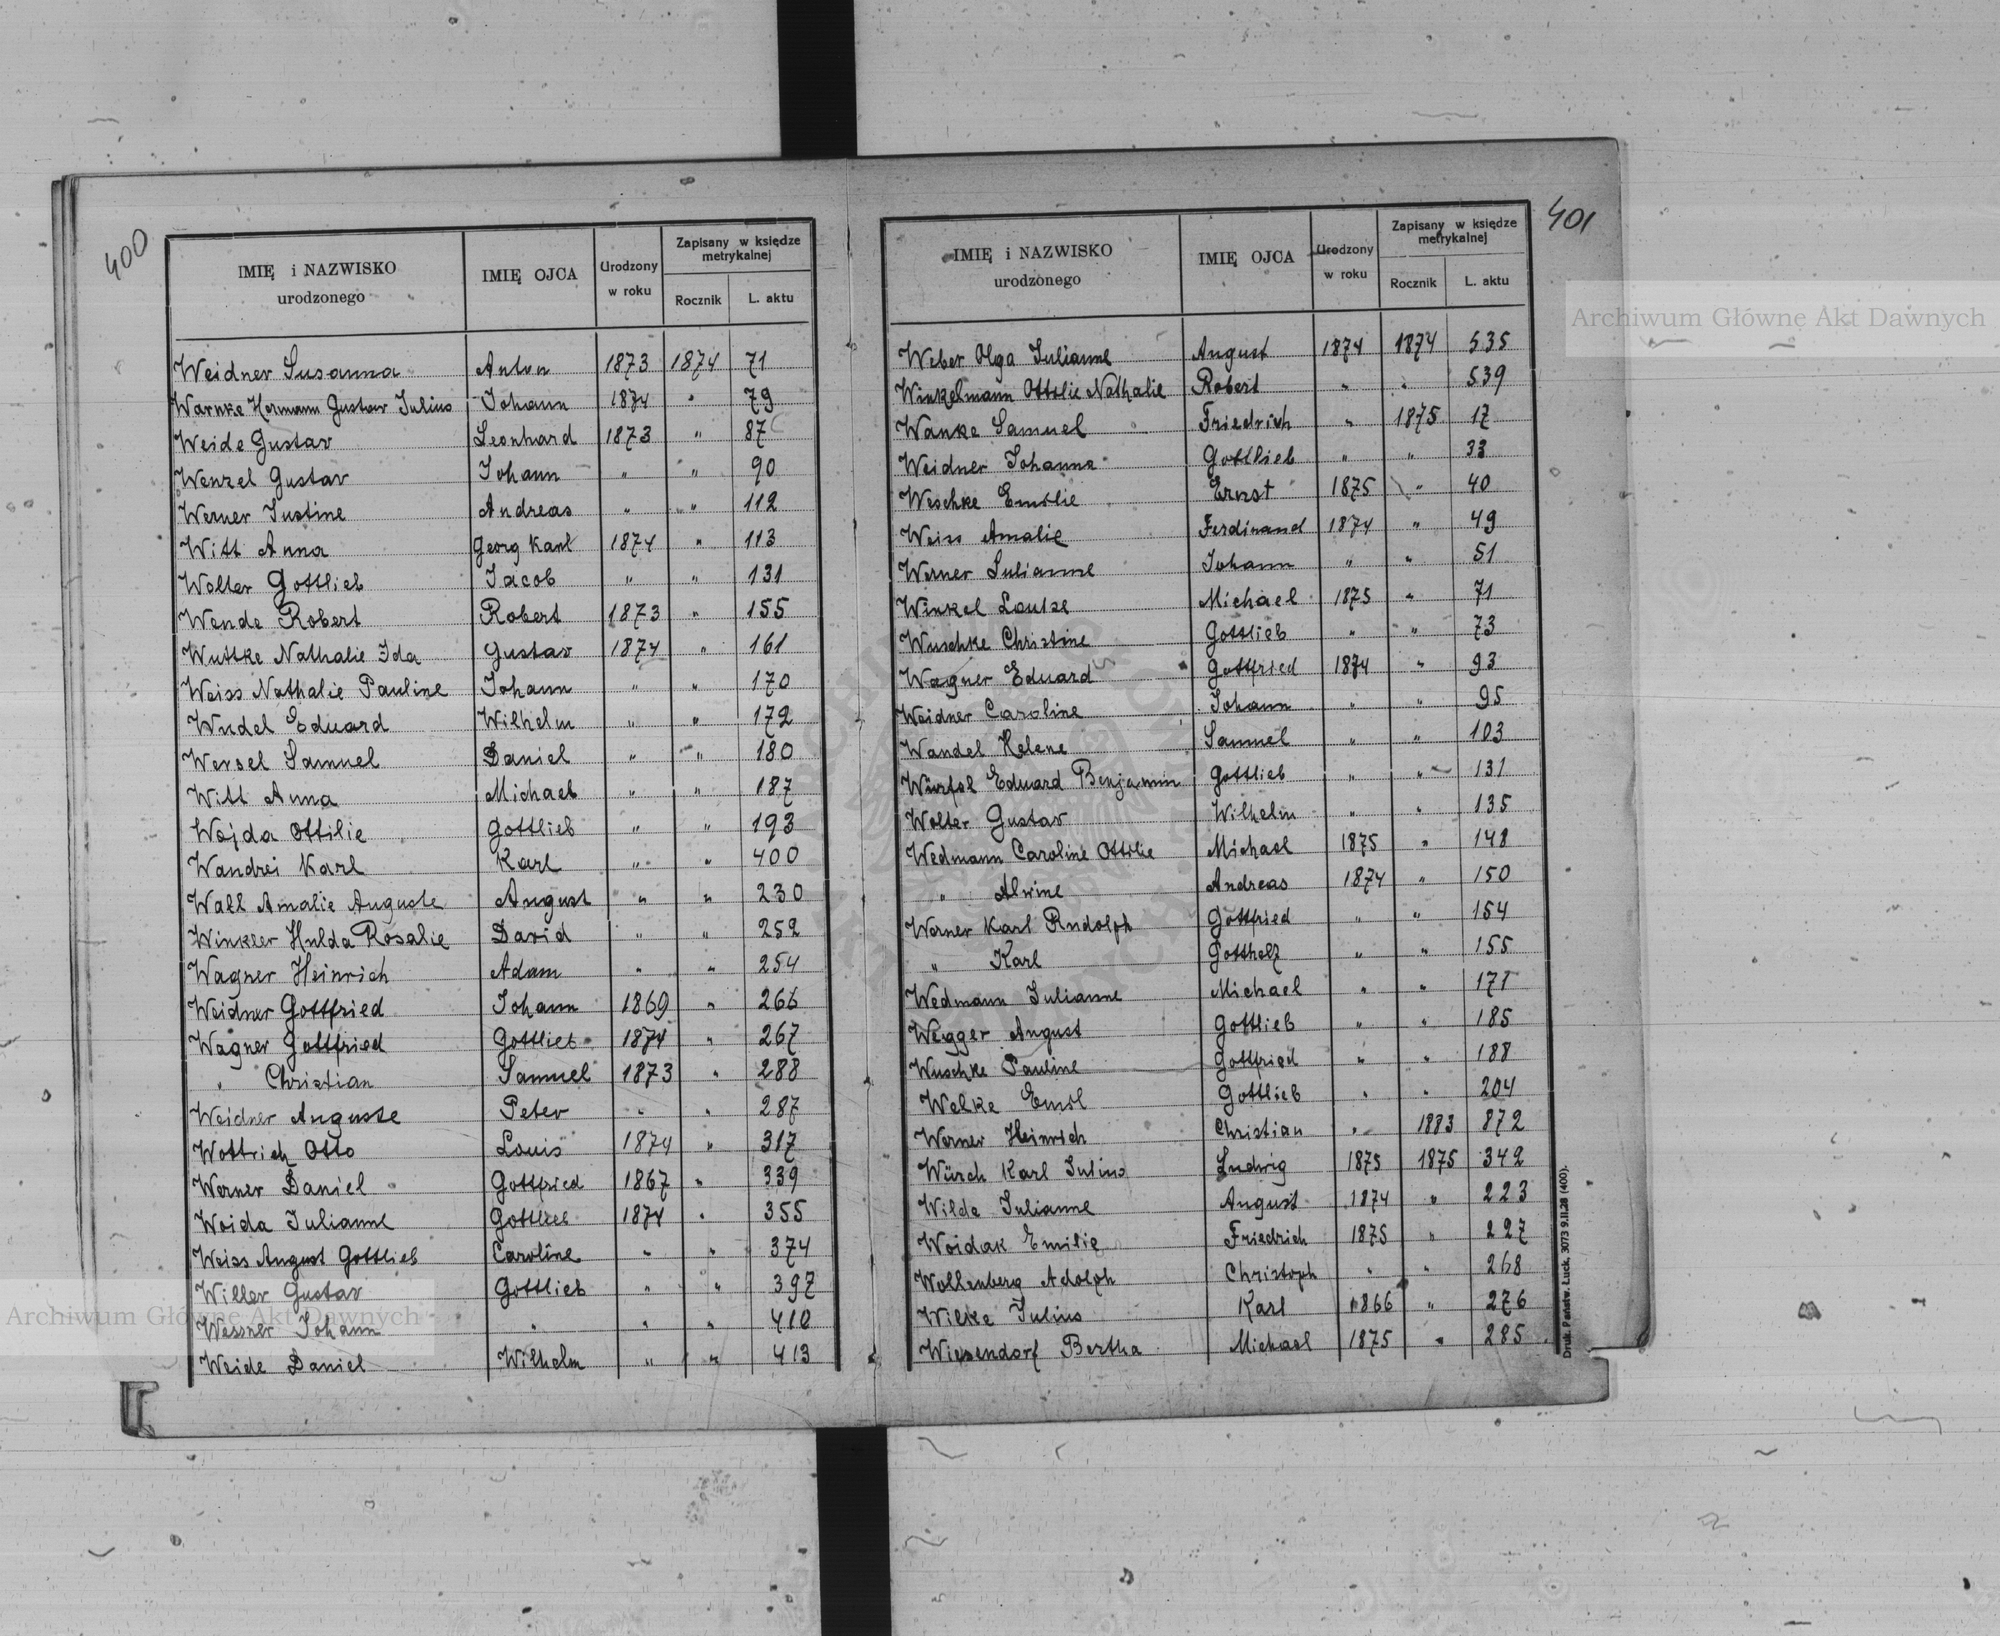 400
IMIĘ i NAZWISKO urodzonego | IMIĘ OJCA | Urodzony w roku | Zapisany w księdze metrykalnej
Rocznik | L. aktu
Weidner Susanna | Anton | 1873 | 1874 | 71
Warnke Hermann Gustav Julius | Johann | 1874 | " | 79
Weide Gustav | Leonhard | 1873 | " | 87
Wenzel Gustav | Johann | " | " | 90
Werner Justine | Andreas | " | " | 112
Witt Anna | Georg Karl | 1874 | " | 113
Wolter Gottlieb | Jacob | " | " | 131
Wende Robert | Robert | 1873 | " | 155
Wuttke Nathalie Ida | Gustav | 1874 | " | 161
Weiss Nathalie Pauline | Johann | " | " | 170
Wudel Eduard | Wilhelm | " | " | 172
Wersel Samuel | Daniel | " | " | 180
Witt Anna | Michael | " | " | 187
Wojda Ottilie | Gottlieb | " | " | 193
Wandrei Karl | Karl | " | " | 400
Wall Amalie Auguste | August | " | " | 230
Winkler Hulda Rosalie | David | " | " | 252
Wagner Heinrich | Adam | " | " | 254
Weidner Gottfried | Johann | 1869 | " | 266
Wagner Gottfried | Gottlieb | 1874 | " | 267
" Christian | Samuel | 1873 | " | 288
Weidner Auguste | Peter | " | " | 287
Wottrich Otto | Louis | 1874 | " | 317
Werner Daniel | Gottfried | 1867 | " | 339
Woida Julianne | Gottlieb | 1874 | " | 355
Weiss August Gottlieb | Caroline | " | " | 374
Willer Gustav | Gottlieb | " | " | 397
Wessner Johann | " | " | " | 410
Weide Daniel | Wilhelm | " | " | 413
401
IMIĘ i NAZWISKO urodzonego | IMIĘ OJCA | Urodzony w roku | Zapisany w księdze metrykalnej
Rocznik | L. aktu
Weber Olga Julianne | August | 1874 | 1874 | 535
Winkelmann Ottilie Nathalie | Robert | " | " | 539
Wanke Samuel | Friedrich | " | 1875 | 17
Weidner Johanna | Gottlieb | " | " | 33
Weschke Emilie | Ernst | 1875 | " | 40
Weiss Amalie | Ferdinand | 1874 | " | 49
Werner Julianne | Johann | " | " | 51
Winkel Louise | Michael | 1875 | " | 71
Wuschke Christine | Gottlieb | " | " | 73
Wagner Eduard | Gottfried | 1874 | " | 93
Weidner Caroline | Johann | " | " | 95
Wandel Helene | Samuel | " | " | 103
Würfel Eduard Benjamin | Gottlieb | " | " | 131
Wolter Gustav | Wilhelm | " | " | 135
Wedmann Caroline Ottilie | Michael | 1875 | " | 148
" Alwine | Andreas | 1874 | " | 150
Werner Karl Rudolph | Gottfried | " | " | 154
" Karl | Gottholz | " | " | 155
Wedmann Julianne | Michael | " | " | 171
Wegger August | Gottlieb | " | " | 185
Wuschke Pauline | Gottfried | " | " | 188
Welke Emil | Gottlieb | " | " | 204
Werner Heinrich | Christian | " | 1883 | 872
Würch Karl Julius | Ludwig | 1875 | 1875 | 342
Wilde Julianne | August | 1874 | " | 223
Woidak Emilie | Friedrich | 1875 | " | 227
Wollenberg Adolph | Christoph | " | " | 268
Wilke Julius | Karl | 1866 | " | 276
Wiesendorf Bertha | Michael | 1875 | " | 285
Druk. Państw. Łuck. 3073 9.II.28 (400).
Archiwum Główne Akt Dawnych
Archiwum Główne Akt Dawnych